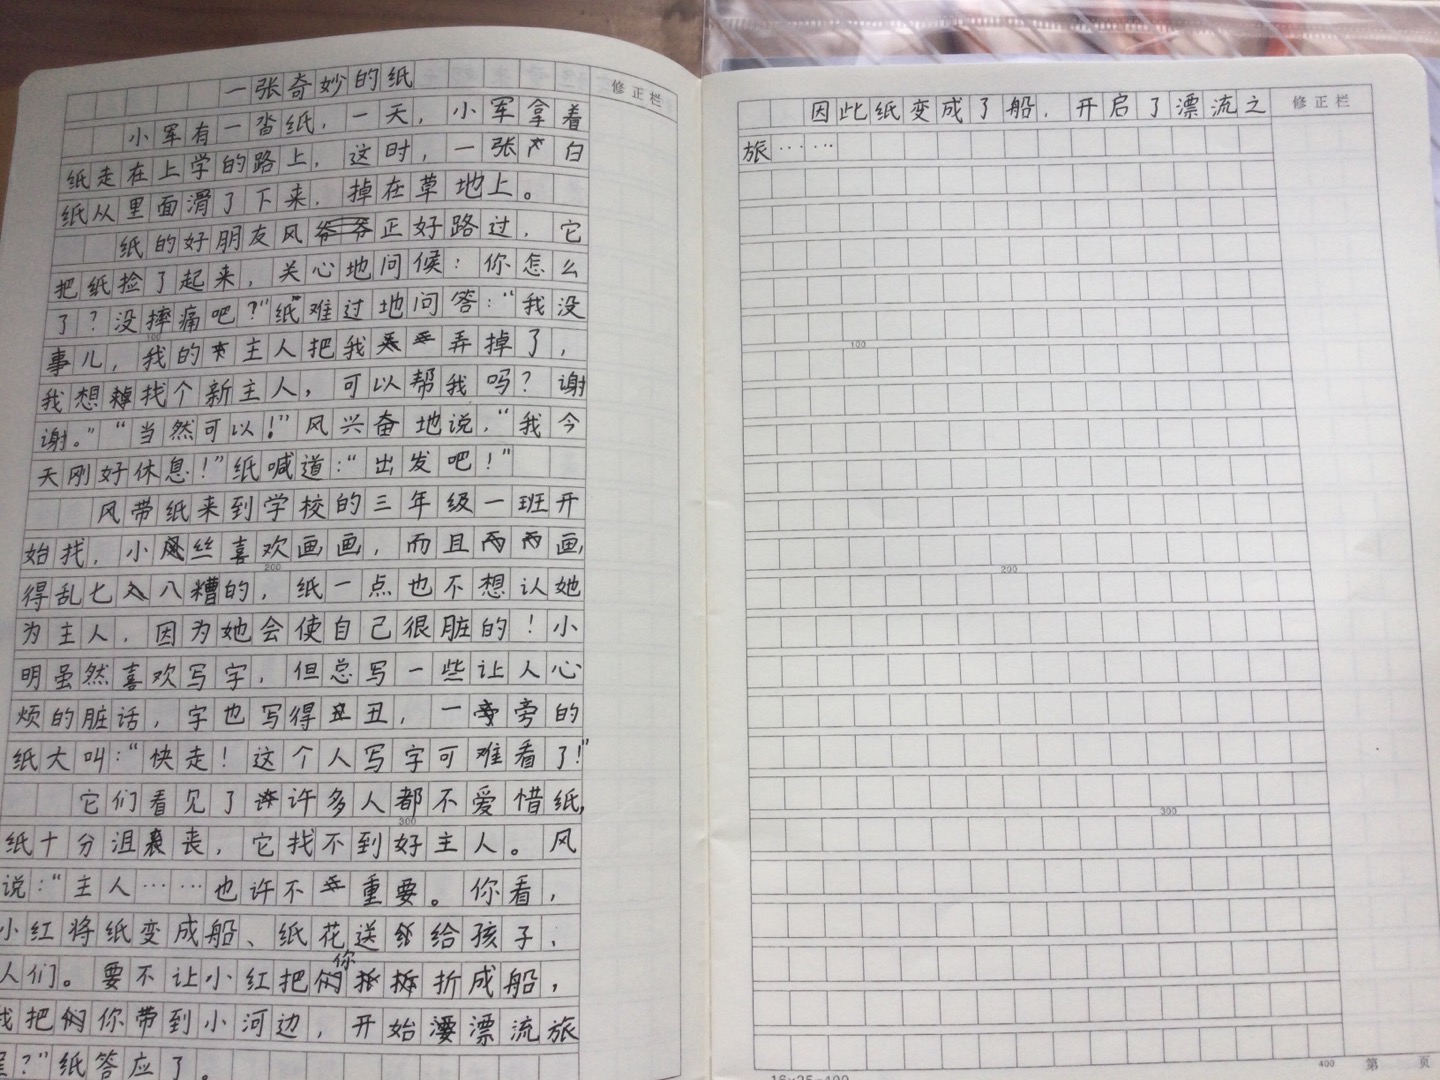 一张奇妙的纸
修正栏
小军有一沓纸，一天，小军拿着
纸走在上学的路上，这时，一张白
纸从里面滑了下来，掉在草地上。
纸的好朋友风正好路过，它
把纸捡了起来，关心地问候：你怎么
了？没摔痛吧？"纸难过地问答："我没
事儿，我的主人把我弄掉了，
我想找个新主人，可以帮我吗？谢
谢。""当然可以！"风兴奋地说，"我今
天刚好休息！"纸喊道："出发吧！"
风带纸来到学校的三年级一班开
始找，小丝喜欢画画，而且画
得乱七八糟的，纸一点也不想认她
为主人，因为她会使自己很脏的！小
明虽然喜欢写字，但总写一些让人心
烦的脏话，字也写得丑，一旁的
纸大叫："快走！这个人写字可难看了！"
它们看见了许多人都不爱惜纸，
纸十分沮丧，它找不到好主人。风
说："主人……也许不重要。你看，
小红将纸变成船、纸花送给孩子，
人们。要不让小红把你折成船，
我把你带到小河边，开始漂流旅
？"纸答应了。
100
200
300
因此纸变成了船，开启了漂流之
旅……
修正栏
100
200
300
400 第 页
16×25=400